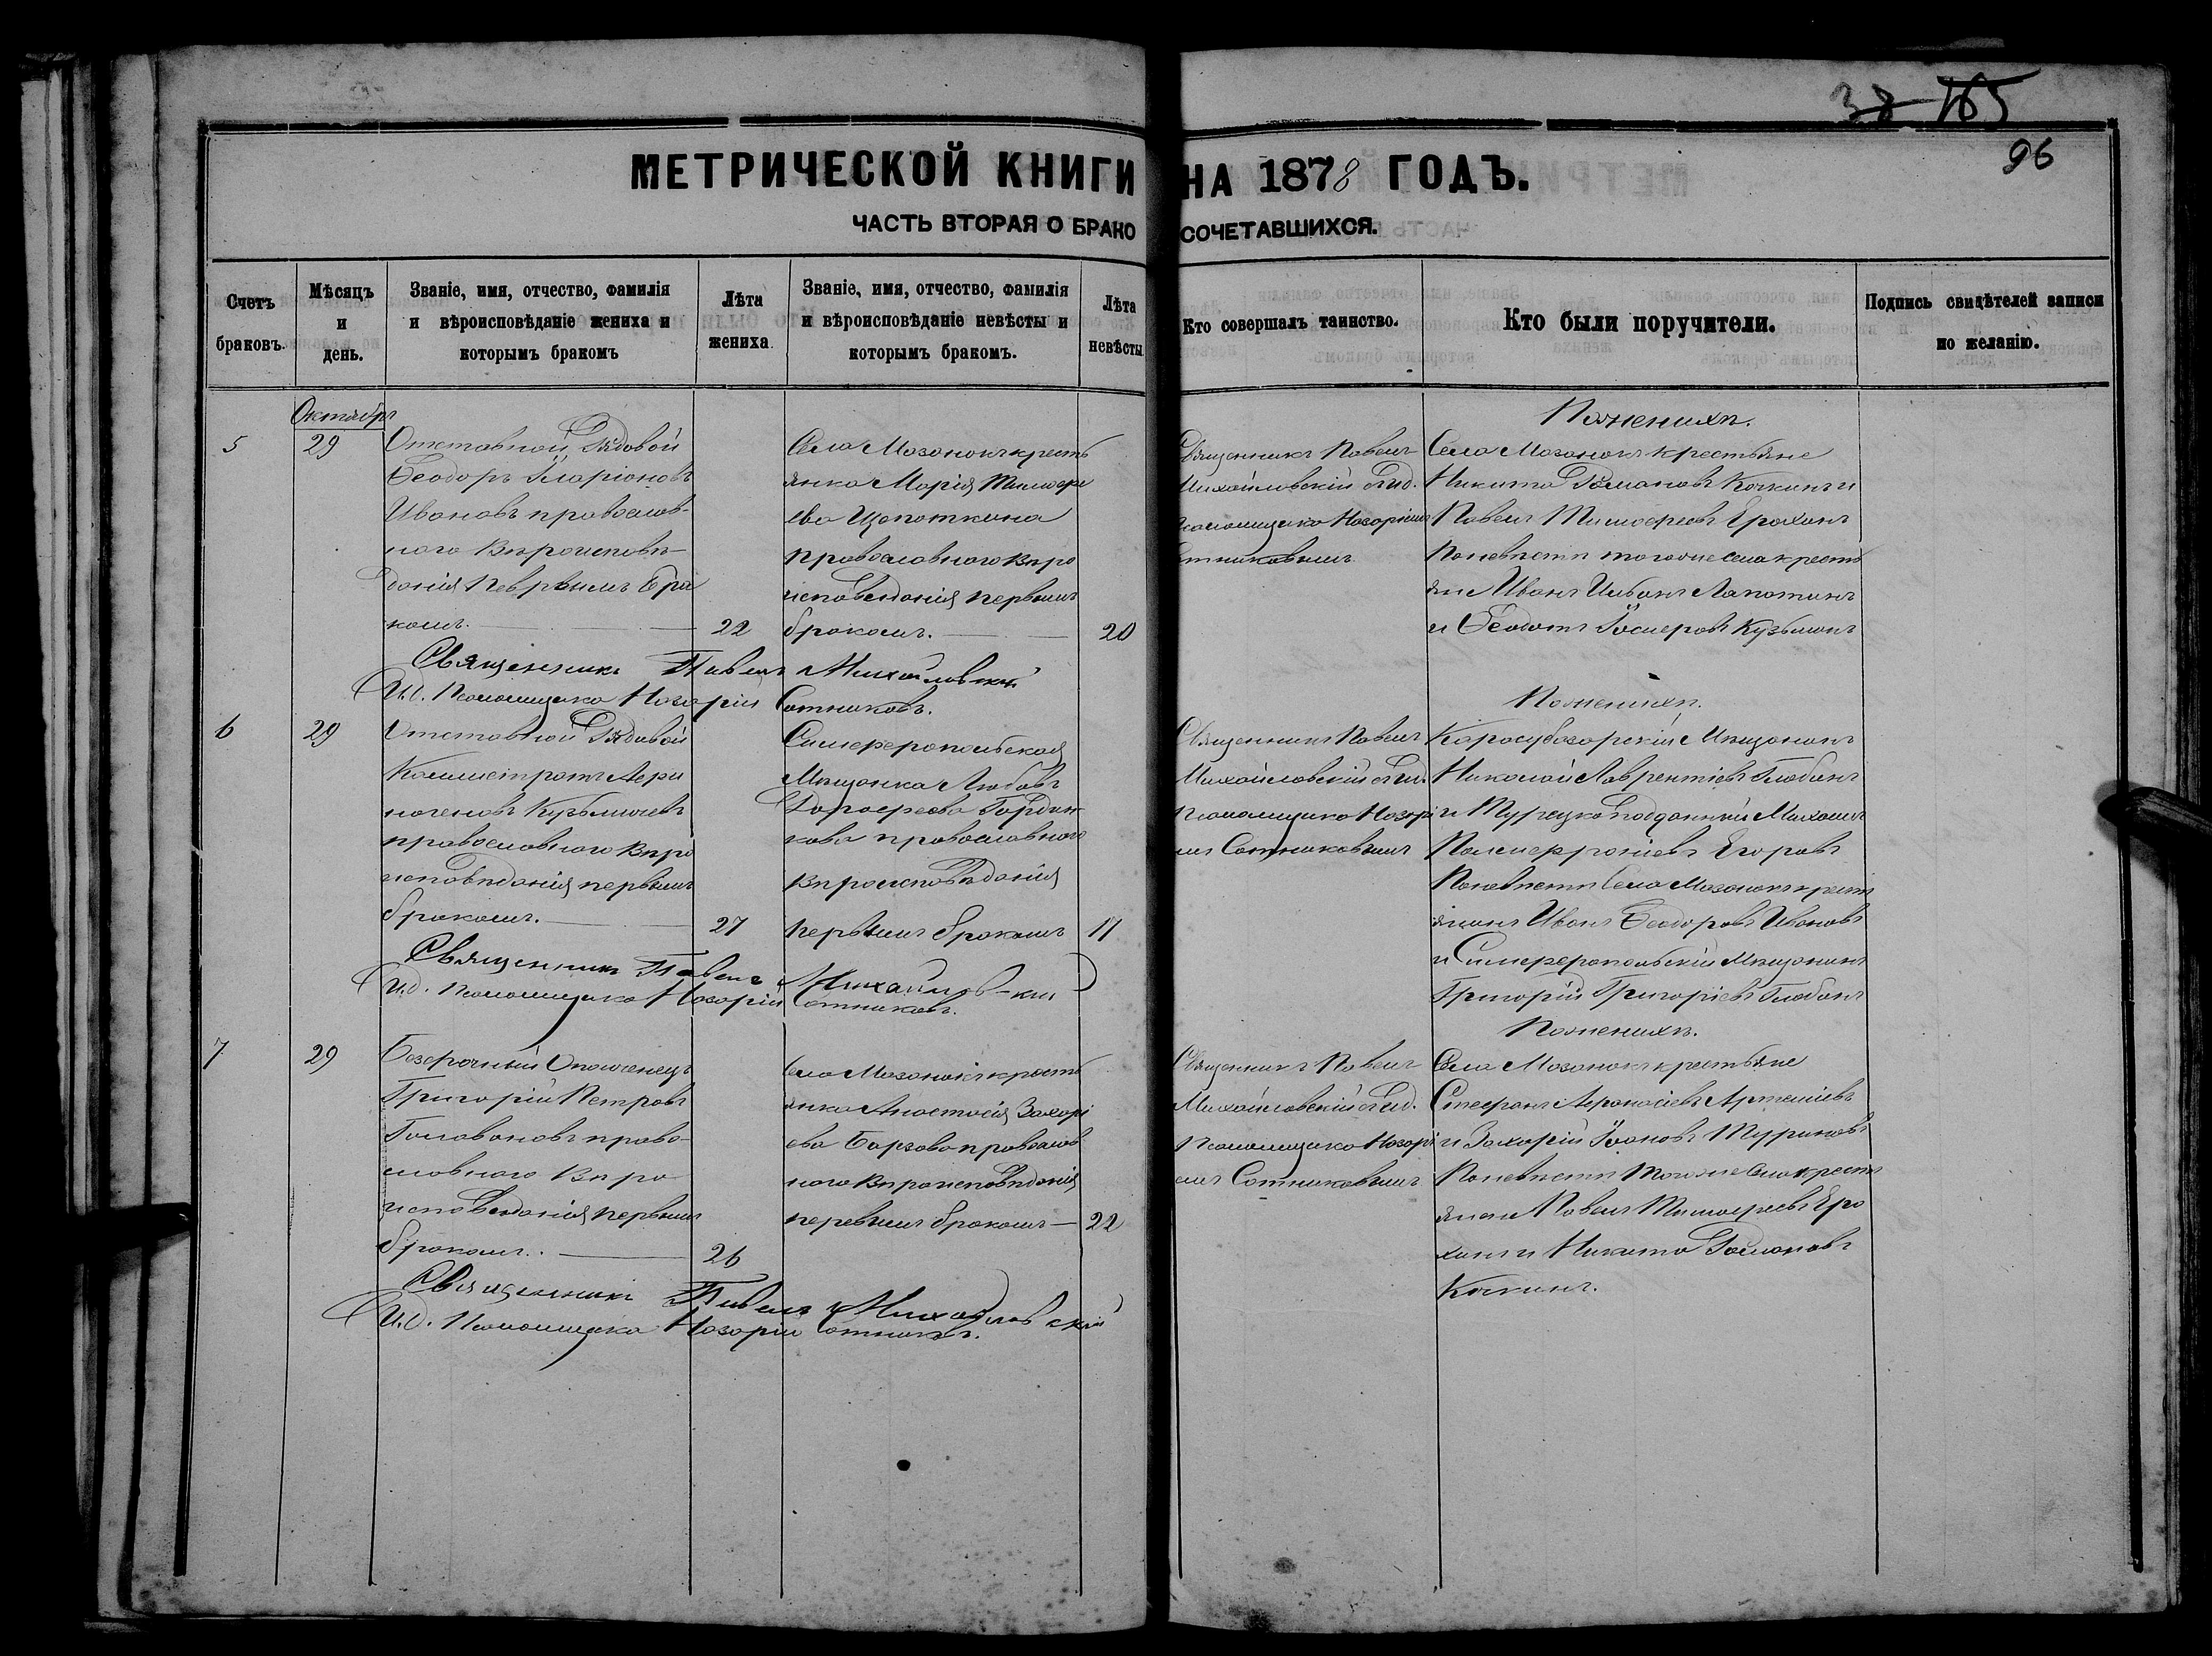 38 165
96
МЕТРИЧЕСКОЙ КНИГИ НА 1878 ГОДЪ.
ЧАСТЬ ВТОРАЯ О БРАКОСОЧЕТАВШИХСЯ.
Счетъ браковъ.
Мѣсяцъ и день.
Званіе, имя, отчество, фамилія и вѣроисповѣданіе жениха и которымъ бракомъ
Лѣта жениха
Званіе, имя, отчество, фамилія и вѣроисповѣданіе невѣсты и которымъ бракомъ.
Лѣта невѣсты
Кто совершалъ таинство.
Кто были поручители.
Подпись свидѣтелей записи по желанію.
Октябрь
5
29
Отставной Рядовой
Ѳеодоръ Иларіоновъ
Ивановъ православ-
наго Вѣроисповѣ-
данія первымъ бра
комъ.
22
Села Мазанокъ кресть
янка Марія Тимофе
ева Щепоткина
православнаго Вѣро
исповеданія первымъ
бракомъ.
20
Священникъ Павелъ
Михайловскій съ И.д.
псаломщика Назаріемъ
Сотниковымъ
По женихѣ.
Села Мазанокъ крестьяне
Никита Романовъ Кочкинъ и
Павелъ Тимофеевъ Ерохинъ
По невѣстѣ того же села кресть
яне Иванъ Лапотинъ
и Ѳеодотъ Кузьминъ
Священникъ Павелъ Михайловскій
И.д. Псаломщика Назарій Сотниковъ.
6
29
Отставной Рядовой
Кузьмичевъ
православнаго Вѣро
исповѣданія первымъ
бракомъ.
27
Симферопольская
Мѣщанка Любовь
Дорофеева Гордин-
кова православнаго
Вѣроисповѣданія
первымъ бракомъ
17
Священникъ Павелъ
Михайловскій съ И.д.
Псаломщика Назарі
емъ Сотниковымъ
По женихѣ.
Карасубазарскій Мѣщанинъ
Николай Лаврентіевъ Глобинъ
и Турецко подданный Михаилъ
Егоровъ
По невѣстѣ Села Мазанокъ кресть
янинъ Иванъ Ѳеодоровъ Ивановъ
и Симферопольскій Мѣщанинъ
Григорій Григоріевъ Глобинъ
Священникъ Павелъ Михайловскій
И.д. Псаломщика Назарій Сотниковъ.
7
29
Безсрочный Ополченецъ
Григорій Петровъ
Головановъ право-
славнаго Вѣро
исповеданія первымъ
бракомъ.
26
Села Мазанокъ кресть
янка Анастасія Захарі
ева православ
наго Вѣроисповѣданія
первымъ бракомъ
22
Священникъ Павелъ
Михайловскій съ И.д.
Псаломщика Назарі
емъ Сотниковымъ
По женихѣ.
Села Мазанокъ крестьяне
Стефанъ Афанасіевъ Артеміевъ
и Захарій Іоановъ Туриновъ
По невѣстѣ того же Села кресть
яне Павелъ Тимофеевъ Еро
хинъ и Никита Романовъ
Кочкинъ.
Священникъ Павелъ Михайловскій
И.д. Псаломщика Назарій Сотниковъ.